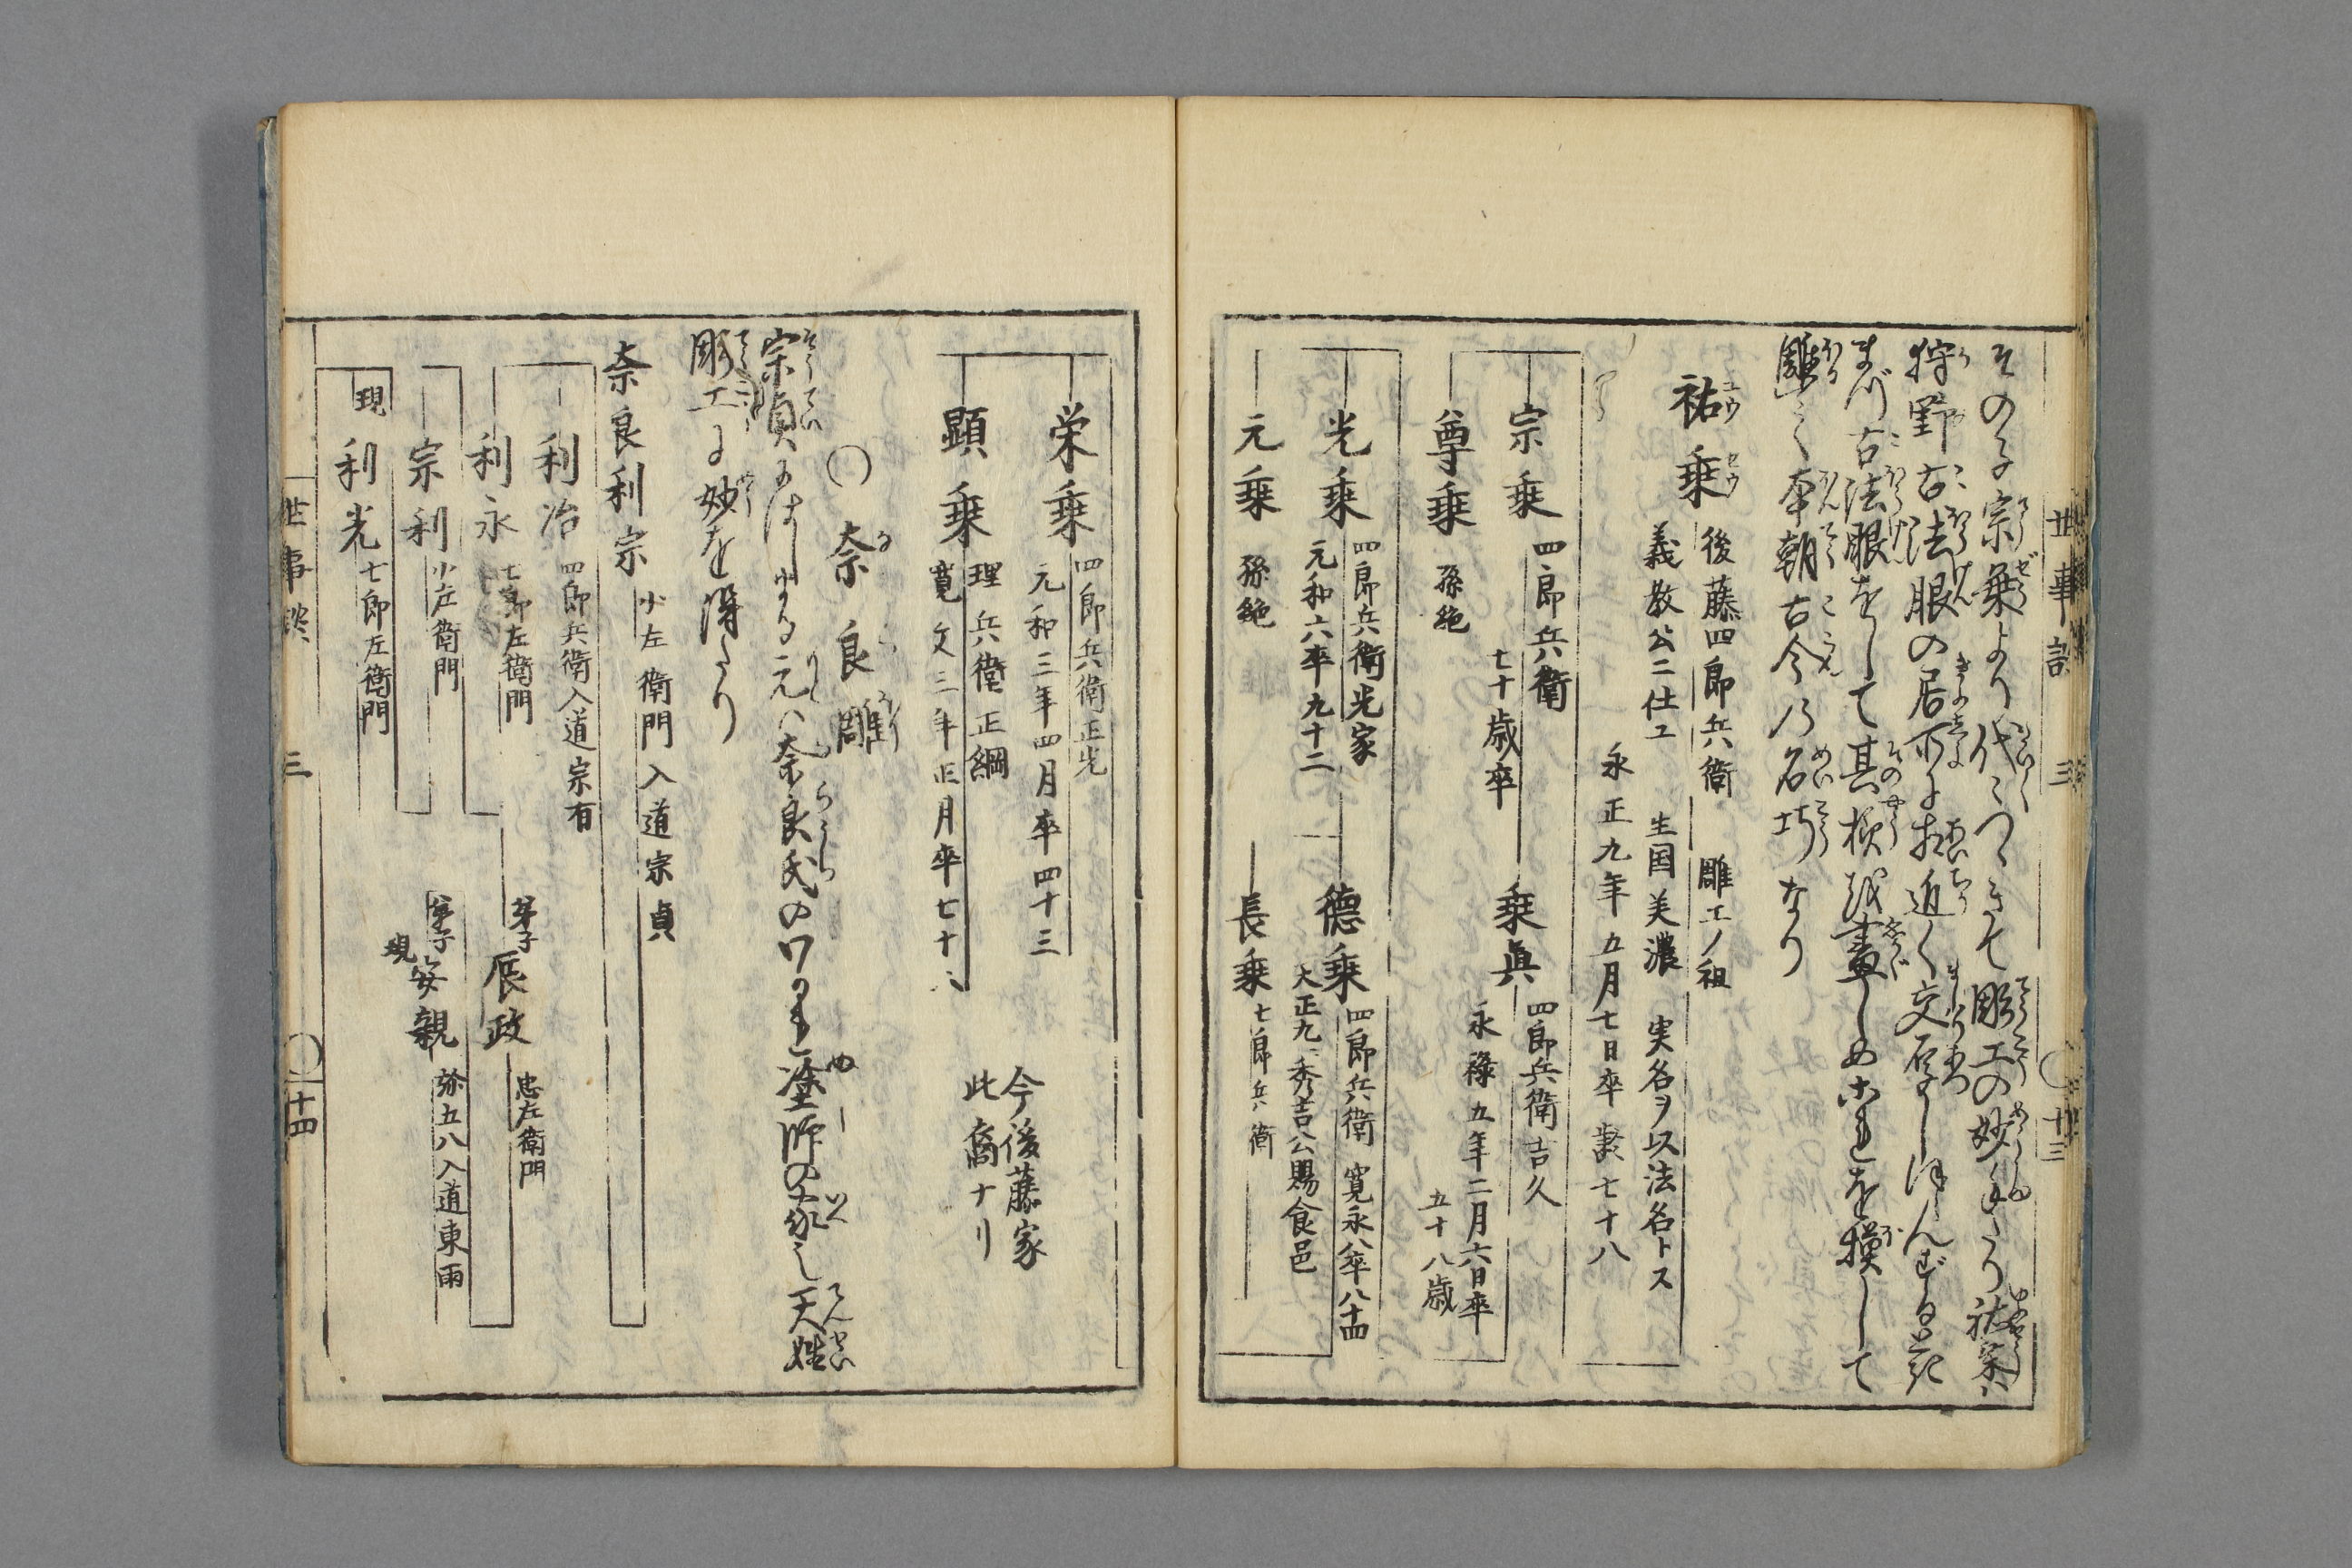 世事談 三 〇十三
その子宗乗より代〻つゞきて彫工の妙手なり祐乗ハ
狩野古法眼の居所に相近く交厚し
まづ古法眼をして其様を畫しめこれを模して
雕之本朝古今の名巧なり
祐乗 後藤四郎兵衛 雕工ノ祖
義教公ニ仕エ 生国美濃 実名ヲ以法名トス
永正九年五月七日卒歳七十八
宗乗 四郎兵衛 七十歳卒
乗眞 四郎兵衛吉久 永禄五年二月六日卒 五十八歳
尊乗 孫絶
光乗 四郎兵衛光家 元和六卒九十二
徳乗 四郎兵衛 寛永八卒八十四
天正九秀吉公賜食邑
元乗 孫絶
長乗 七郎兵衛
栄乗 四郎兵衛正光 元和三年四月卒四十三
顕乗 理兵衛正綱 寛文三年正月卒七十八
今後藤家
此裔ナリ
〇奈良雕
宗貞にはじまる元ハ奈良氏のワかれ塗師の家也天性
彫工に妙を得たり
奈良利宗 少左衛門入道宗貞
利治 四郎兵衛入道宗有
利永 七郎左衛門
弟子 辰政 忠左衛門
宗利 少左衛門
弟子 現 安親 弥五八入道東雨
現 利光 七郎左衛門
世事談 三 〇十四